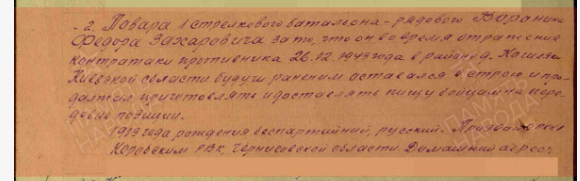 - 2. Повара 1 стрелкового баталиона - рядового
Федора Захаровича за то, что он во время отражения
контратаки противника 26.12.1943 года в районе д.
Киевской области будучи раненим оставался в строю и про-
должал приготовлять и доставлять пищу бойцам на пере-
довые позиции.
1913 года рождения беспартийный, русский. Призван
РВК Черниговской области. Домашний адрес: